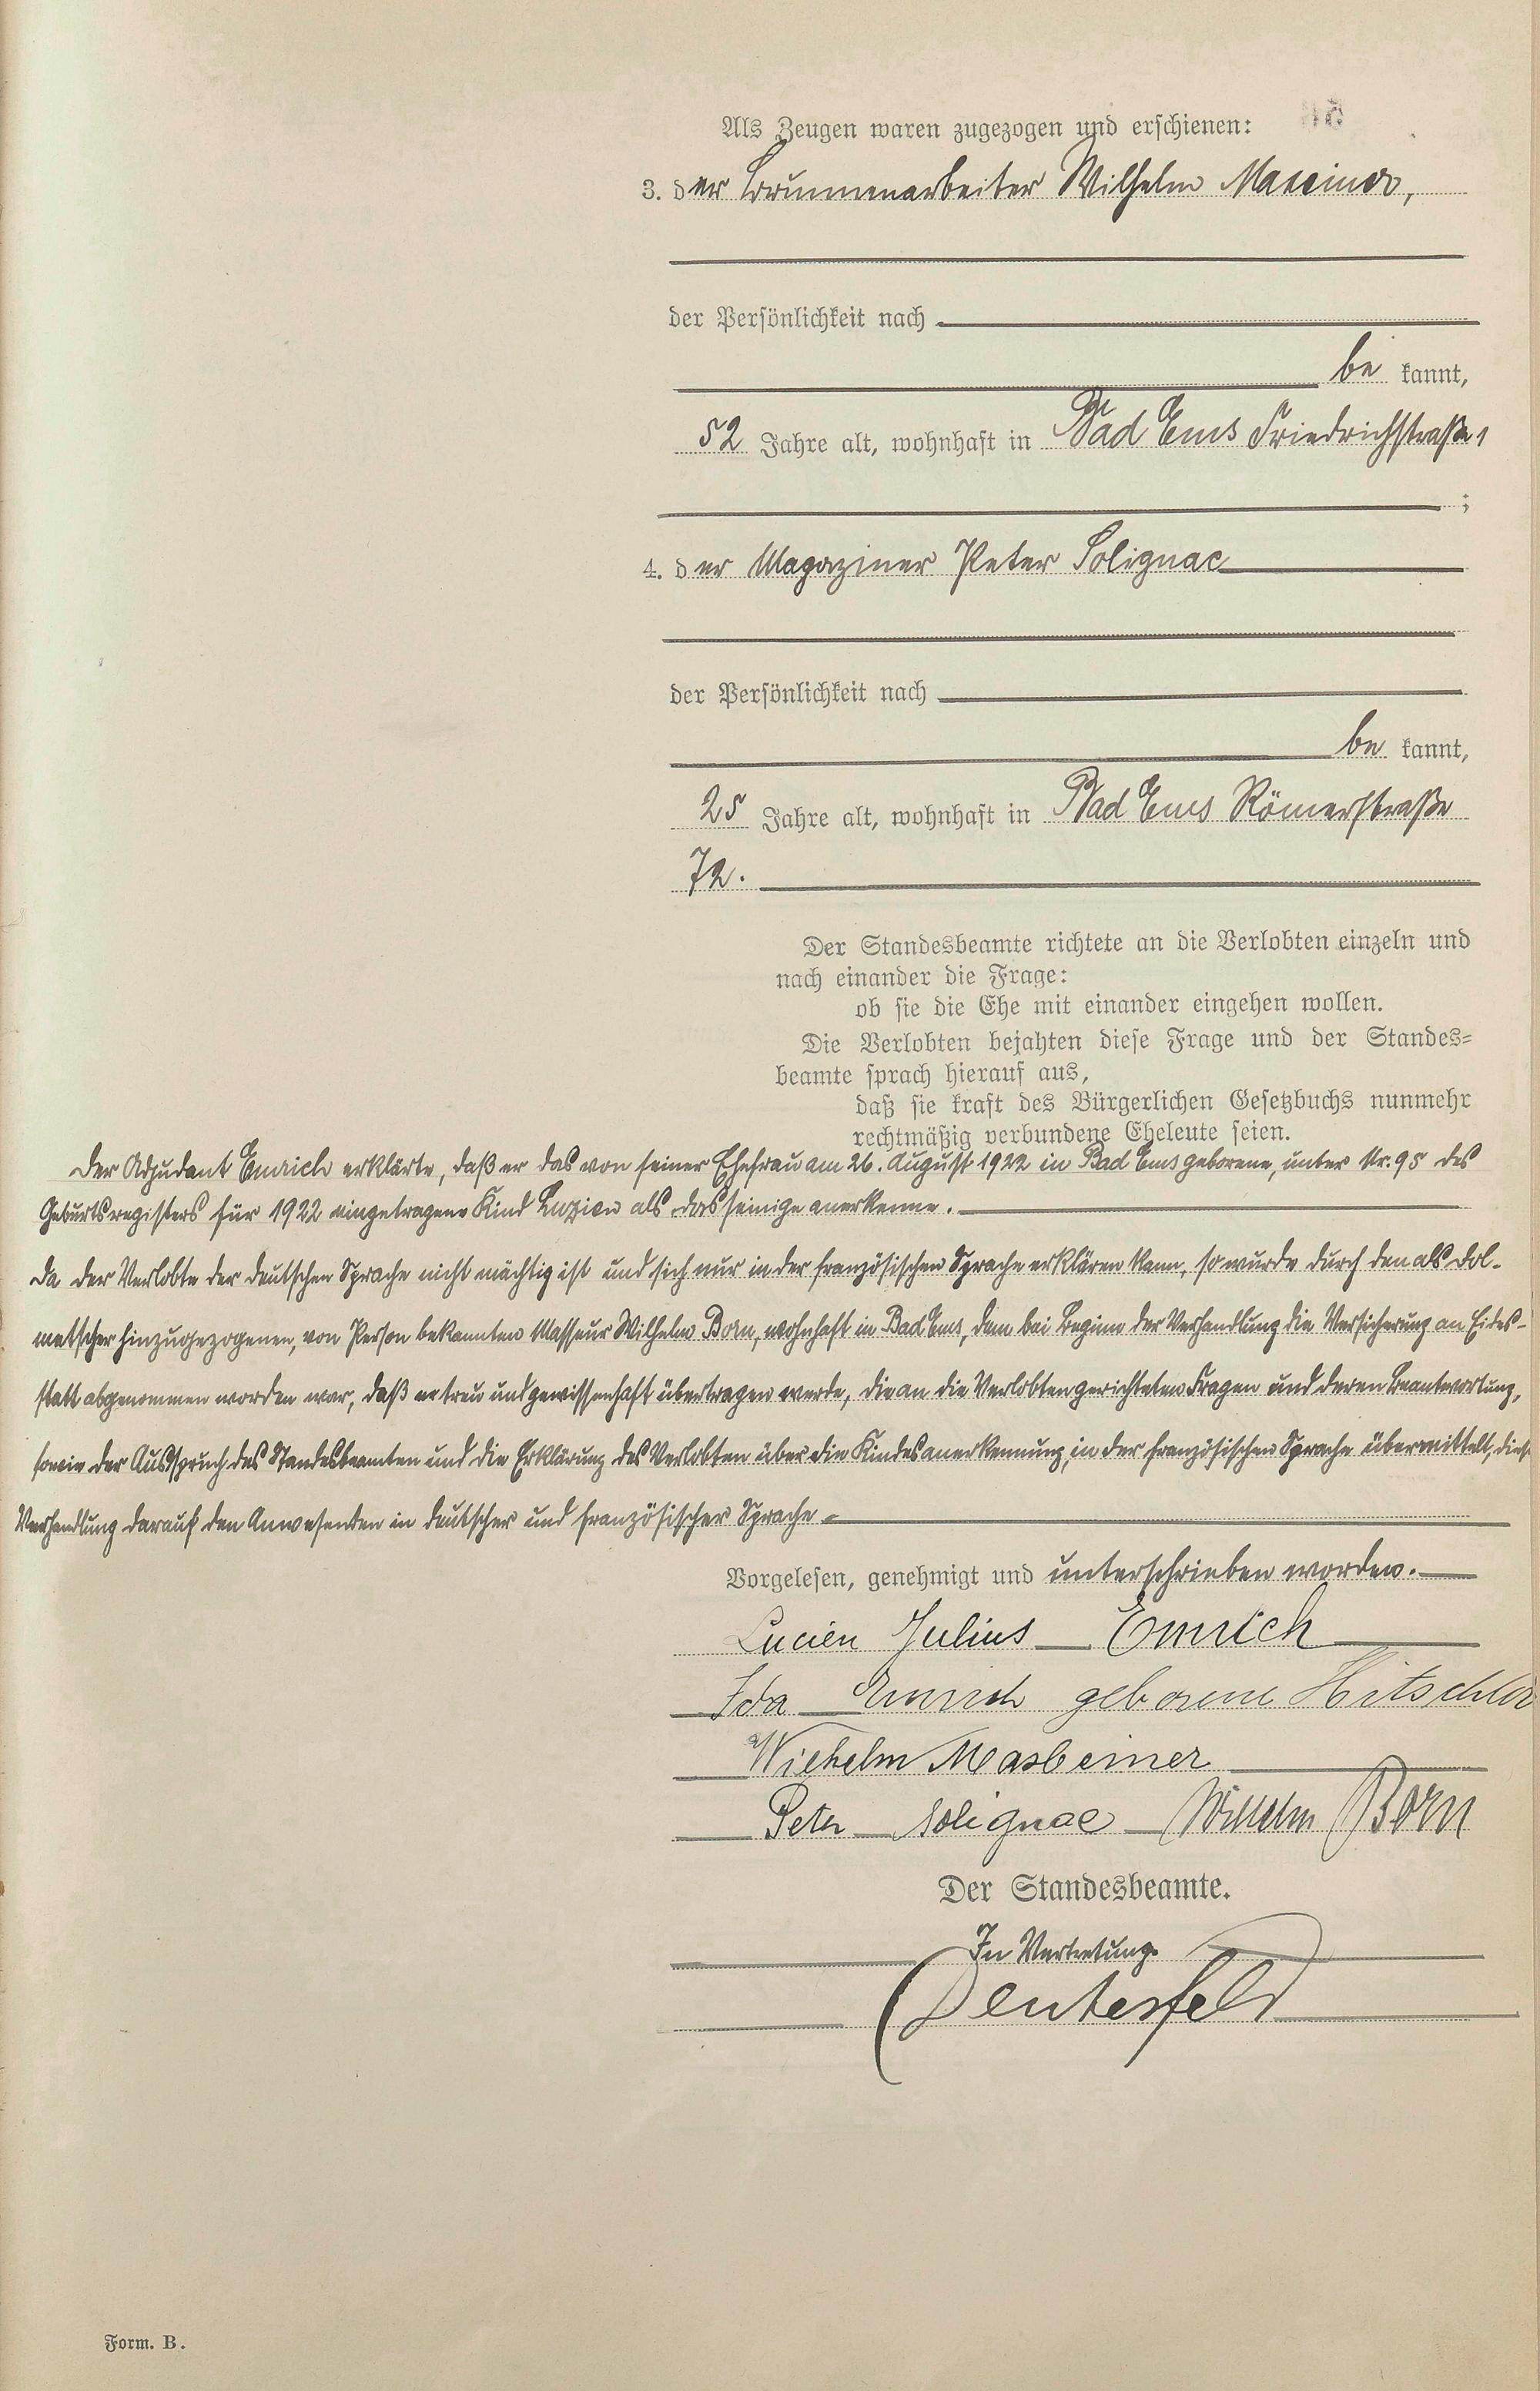 Als Zeugen waren zugezogen und erschienen:
3. der Brunnenarbeiter Wilhelm
der Persönlichkeit nach
be kannt,
52 Jahre alt, wohnhaft in Bad Ems Friedrichstraße 1
;
4. der Magaziner Peter Solignac
der Persönlichkeit nach
be kannt,
25 Jahre alt, wohnhaft in Bad Ems Römerstraße
72.
Der Standesbeamte richtete an die Verlobten einzeln und
nach einander die Frage:
ob sie die Ehe mit einander eingehen wollen.
Die Verlobten bejahten diese Frage und der Standes=
beamte sprach hierauf aus,
daß sie kraft des Bürgerlichen Gesetzbuchs nunmehr
rechtmäßig verbundene Eheleute seien.
Der Adjudant Emrich erklärte, daß er das von seiner Ehefrau am 26. August 1922 in Bad Ems geborene, unter Nr. 95 des
Geburtsregisters für 1922 eingetragene Kind als das seinige anerkenne.
Da der Verlobte der deutschen Sprache nicht mächtig ist und sich nur in der französischen Sprache erklären kann, so wurde durch den als Dol-
metscher hinzugezogenen, von Person bekannten Masseur Wilhelm Born, wohnhaft in Bad Ems, dem bei Beginn der Verhandlung die Versicherung an Eides-
statt abgenommen worden war, daß er treu und gewissenhaft übertragen werde, die an die Verlobten gerichteten Fragen und deren Beantwortung,
sowie der Ausspruch des Standesbeamten und die Erklärung des Verlobten über die Kindesanerkennung, in der französischen Sprache übermittelt, diese
Verhandlung darauf den Anwesenden in deutscher und französischer Sprache
Vorgelesen, genehmigt und unterschrieben worden.
Lucien Julius Emrich
Ida Emrich geborene Hitschler
Wilhelm Masbeiner
Peter Solignac Wilhelm Born
Der Standesbeamte.
In Vertretung.
Deutesfeld
Form. B.